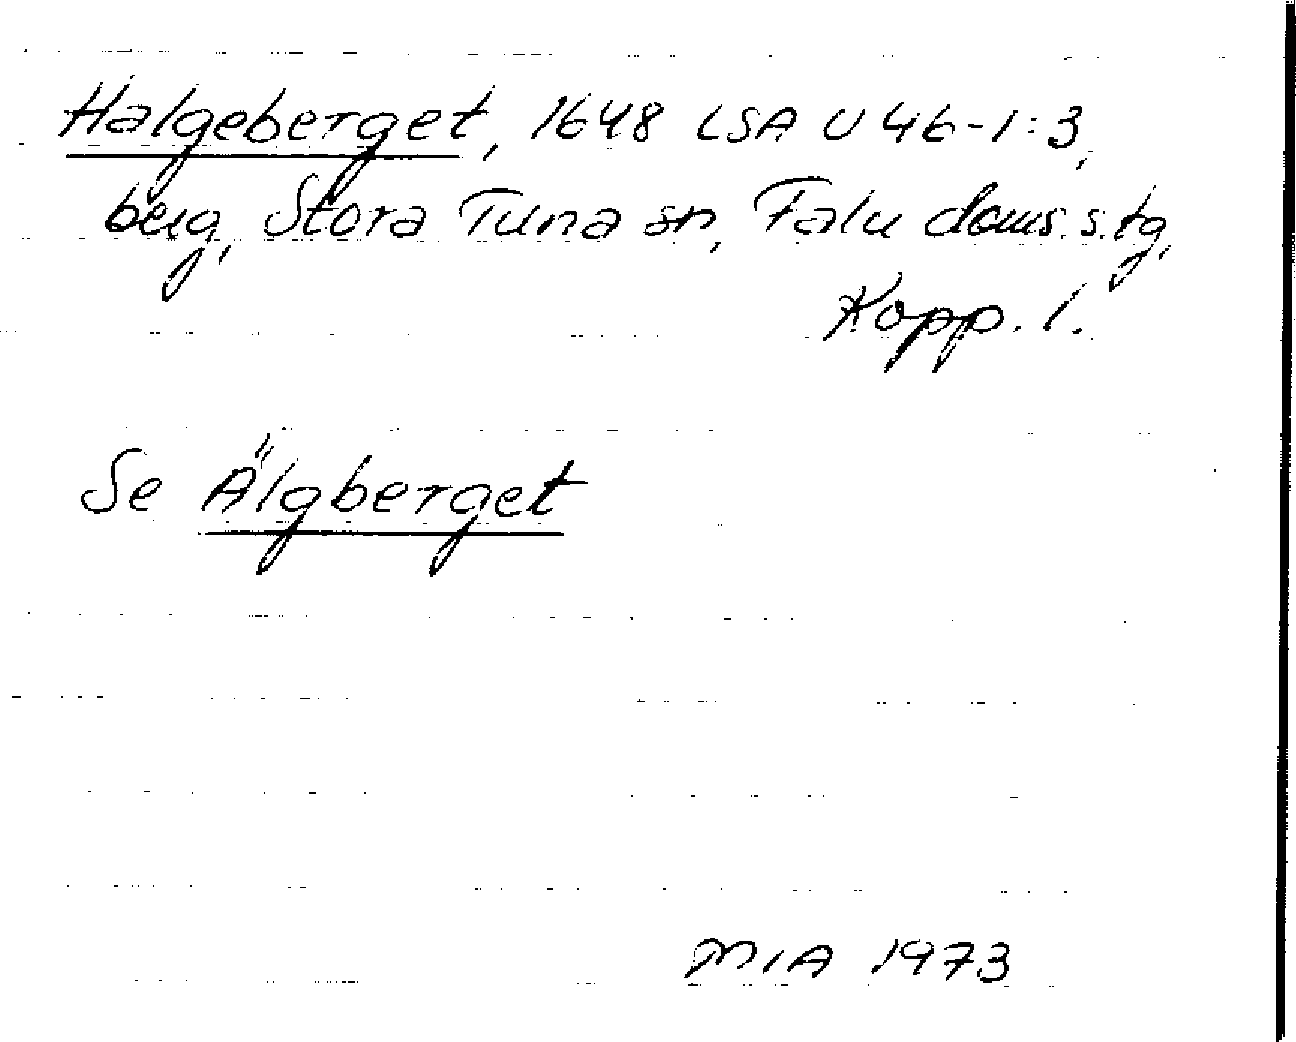 Halgeberget, 1648 LSA U 46-1:3,
berg, Stora Tuna sn, Falu doms.s.tg,
Kopp. l.
Se Älgberget
MIA 1973